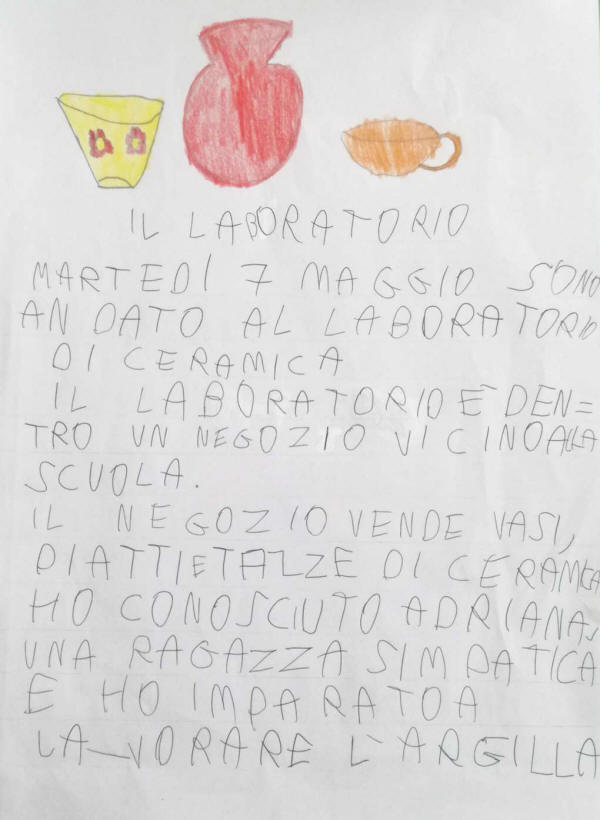 IL LABORATORIO
MARTEDÌ 7 MAGGIO SONO
ANDATO AL LABORATORIO
DI CERAMICA
IL LABORATORIO È DEN=
TRO UN NEGOZIO VICINO ALLA
SCUOLA.
IL NEGOZIO VENDE VASI,
PIATTI E TAZZE DI CERAMICA
HO CONOSCIUTO ADRIANA,
UNA RAGAZZA SIMPATICA
E HO IMPARATO A
LAVORARE L'ARGILLA